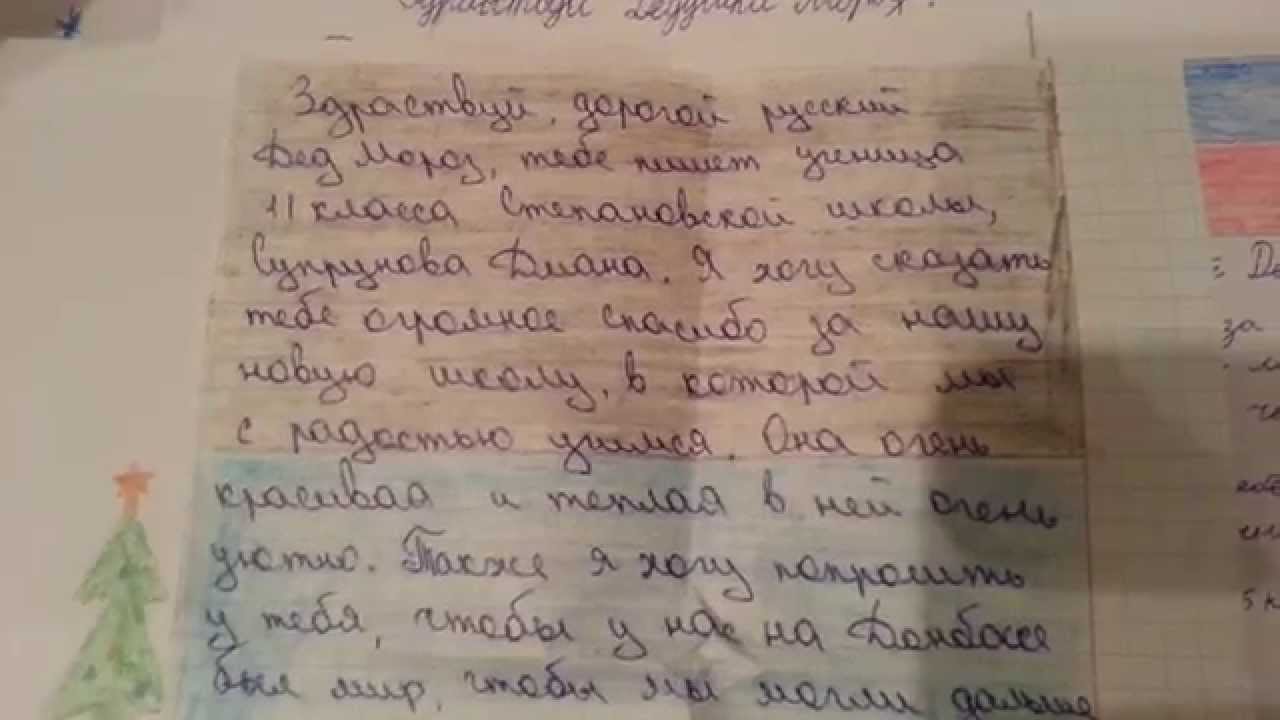 Здравствуй Дедушка Мороз!
Здраствуй, дорогой русский
Дед Мороз, тебе пишет ученица
11 класса Степановской школы,
Супрунова Диана. Я хочу сказать
тебе огромное спасибо за нашу
новую школу, в которой мы
с радостью учимся. Она очень
красивая и теплая в ней очень
уютно. Также я хочу попросить
у тебя, чтобы у нас на Донбассе
был мир, чтобы мы могли дальше
за
5 к